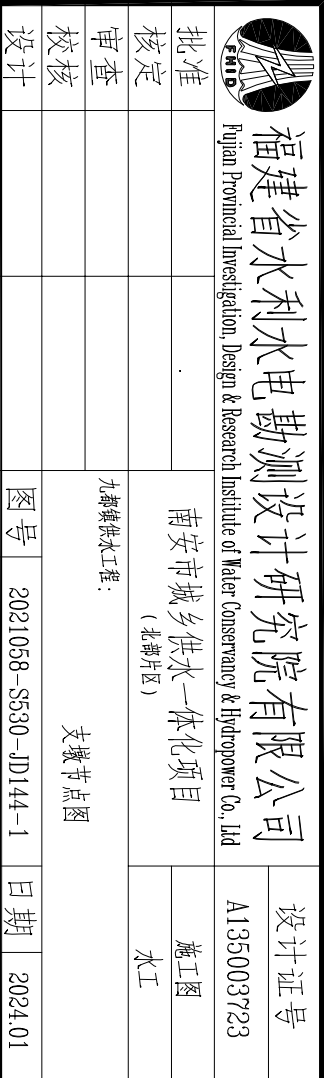 FHID
福建省水利水电勘测设计研究院有限公司
Fujian Provincial Investigation, Design & Research Institute of Water Conservancy & Hydropower Co., Ltd
设计证号
A135003723
批准
核定
审查
校核
设计
南安市城乡供水一体化项目
(北部片区)
施工图
水工
九都镇供水工程：
支墩节点图
图号
2021058-S530-JD144-1
日期
2024.01